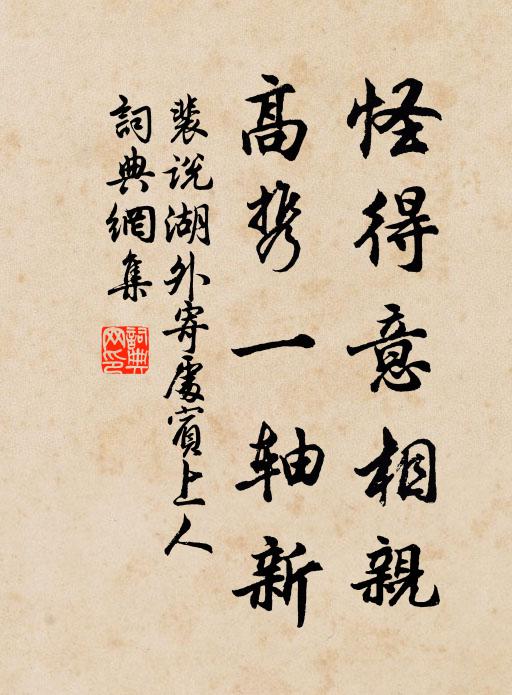 怪得意相親
高携一轴新
裴説湖外寄處賓上人
詞典網集
詞典網印